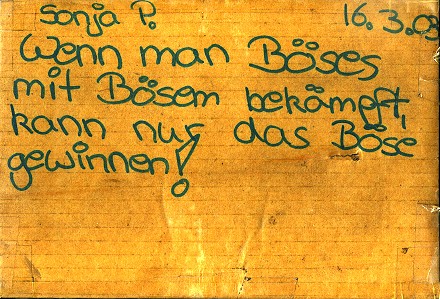 Sonja P. 16.3.03
Wenn man Böses
mit Bösem bekämpft,
kann nur das Böse
gewinnen!